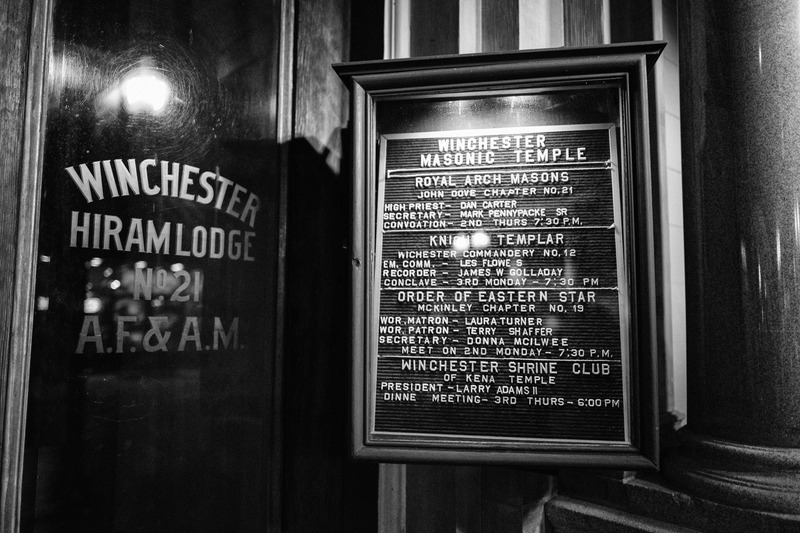 WINCHESTER
HIRAM LODGE
No 21
A.F. & A.M.
WINCHESTER
MASONIC TEMPLE
ROYAL ARCH MASONS
JOHN DOVE CHAPTER NO. 21
HIGH PRIEST- DAN CARTER
SECRETARY- MARK PENNYPACKE SR
CONVOATION- 2ND THURS 7:30 P.M.
TEMPLAR
WICHESTER COMMANDERY NO. 12
EM. COMM. - LES FLOWE S
RECORDER - JAMES W GOLLADAY
CONCLAVE - 3RD MONDAY - 7:30 PM
ORDER OF EASTERN STAR
MCKINLEY CHAPTER NO. 19
WOR. MATRON - LAURA TURNER
WOR. PATRON - TERRY SHAFFER
SECRETARY - DONNA MCILWEE
MEET ON 2ND MONDAY - 7:30 P.M.
WINCHESTER SHRINE CLUB
OF KENA TEMPLE
PRESIDENT - LARRY ADAMS II
DINNE MEETING - 3RD THURS - 6:00 PM